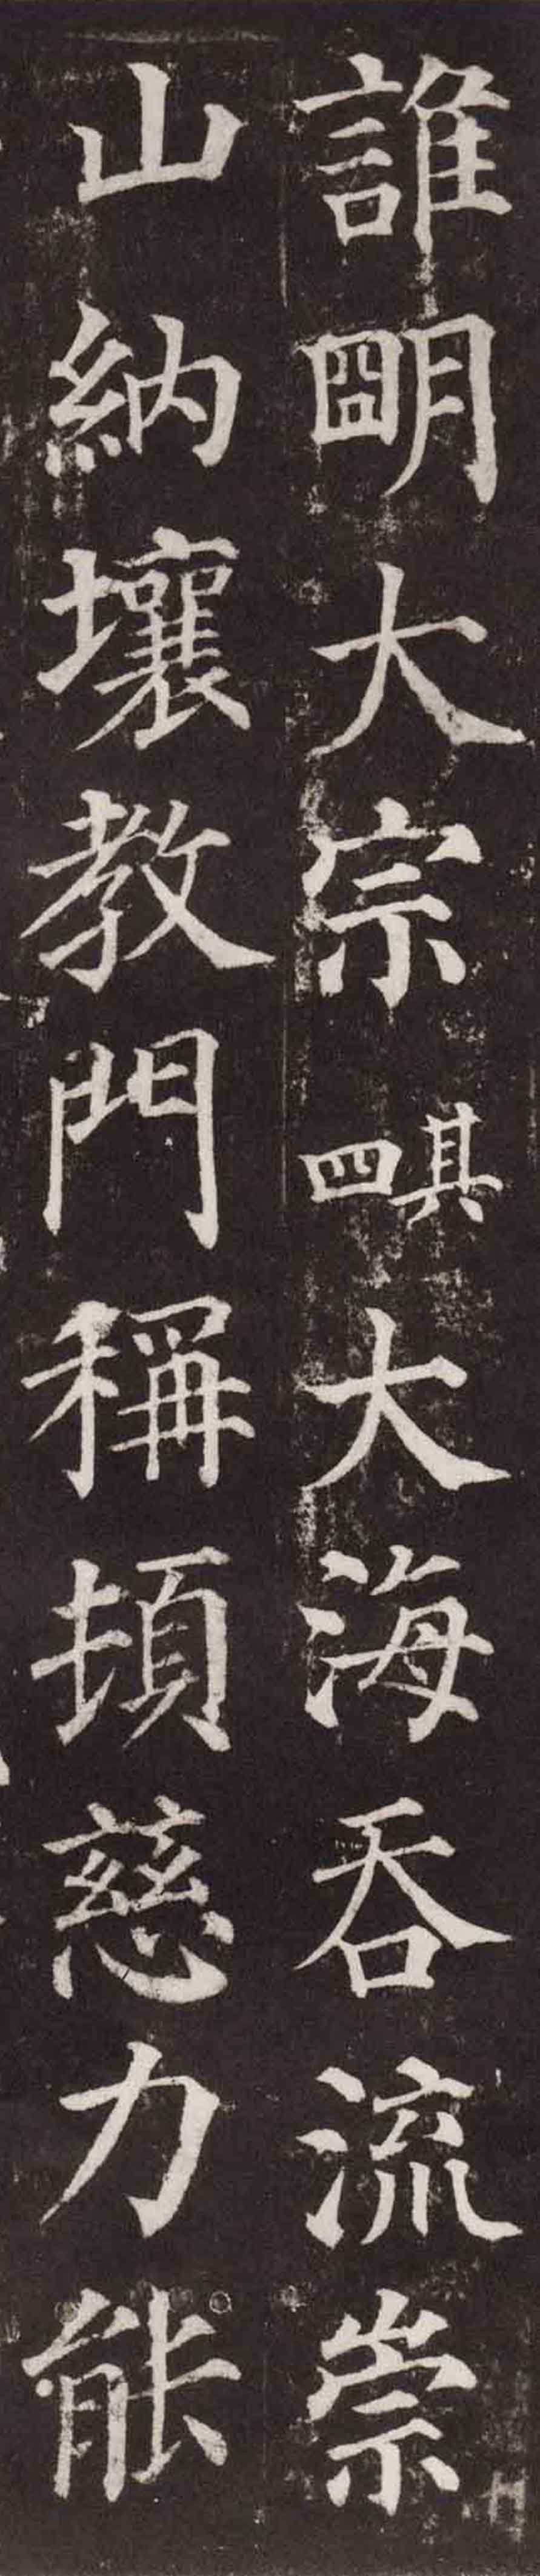 誰明大宗其四大海吞流崇
山納壤教門稱頓慈力能